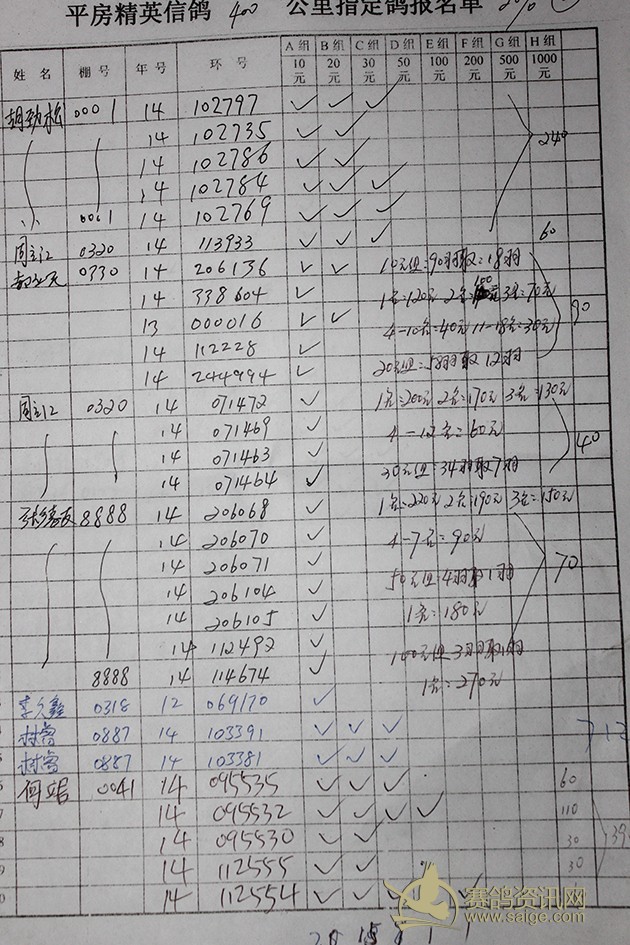 平房精英信鸽 400 公里指定鸽报名单
姓名 棚号 年号 环号 A组 10元 B组 20元 C组 30元 D组 50元 E组 100元 F组 200元 G组 500元 H组 1000元
胡劲松 0001 14 102797 ✓ ✓ ✓
14 102735 ✓ ✓ 240
14 102786 ✓ ✓
14 102784 ✓ ✓ ✓
0001 14 102769 ✓ ✓ ✓
周立江 0320 14 113933 ✓ ✓ ✓ 60
0330 14 206136 ✓ ✓ 10元组:90羽取:18羽
14 338604 ✓ 1名:120元 2名:100元 3名:70元
13 000016 ✓ ✓ 4-10名:40元 11-18名:30元 90
14 112228 ✓ 20元组:58羽取12羽
14 244994 ✓
周立江 0320 14 071472 ✓ 1名:200元 2名:170元 3名:130元
14 071469 ✓ 4-12名:60元
14 071463 ✓ 40
14 071464 ✓ 30元组:34羽取7羽
8888 14 206068 ✓ 1名:220元 2名:190元 3名:150元
14 206070 ✓ 4-7名:90元
14 206071 ✓ 70
14 206104 ✓ 50元组:4羽取1羽
14 206105 ✓ 1名:180元
14 112492 ✓ 100元组3羽取1羽
8888 14 114674 ✓ 1名:270元
李久鑫 0318 12 069170 ✓
0887 14 103391 ✓ ✓ ✓
0887 14 103381 ✓ ✓ ✓
何 0041 14 095535 ✓ ✓ ✓ 60
14 095532 ✓ ✓ ✓ ✓ 110
14 095530 ✓ ✓ 30
14 112555 ✓ ✓ 30
14 112554 ✓ ✓ ✓ ✓ ✓
赛鸽资讯网
www.saige.com